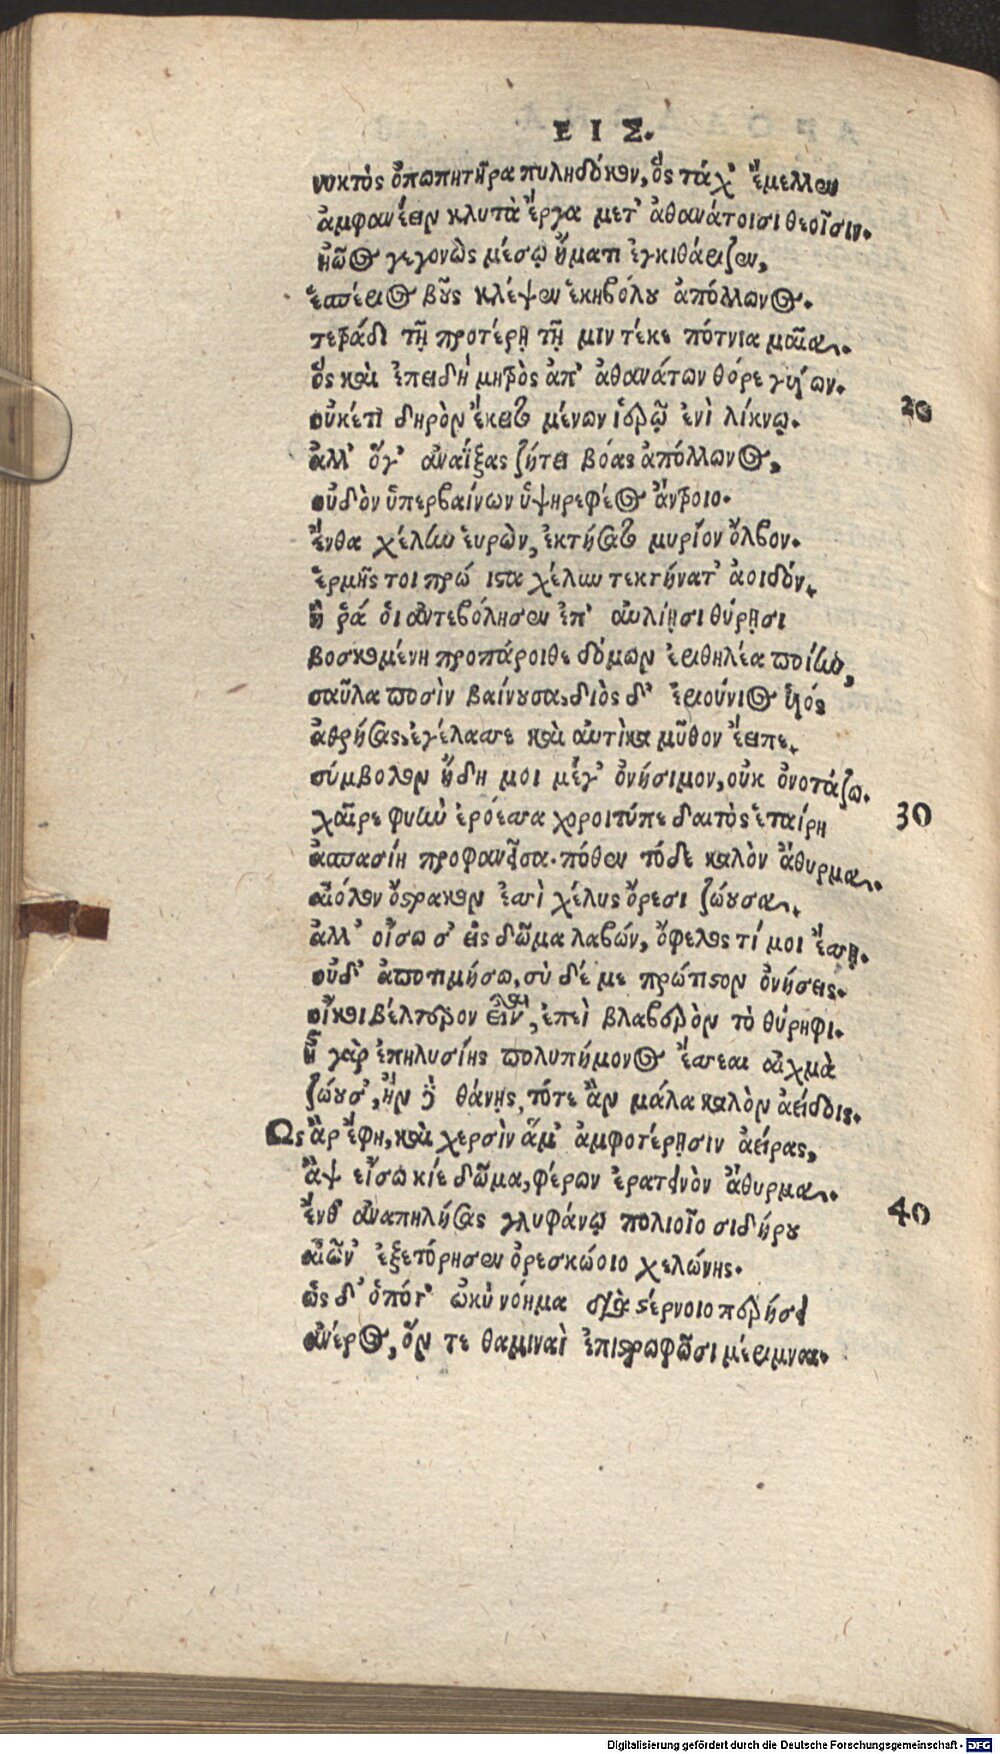 ΕΙΣ.
νυκτὸς ὀπωπητῆρα πυληδόκον, ὃς τάχ' ἔμελλεν
ἀμφανέειν κλυτὰ ἔργα μετ' ἀθανάτοισι θεοῖσιν.
ἠῶος γεγονὼς μέσῳ ἤματι ἐγκιθάριζεν,
ἑσπέριος βοῦς κλέψεν ἑκηβόλου ἀπόλλωνος.
τετράδι τῇ προτέρῃ τῇ μιν τέκε πότνια μαῖα.
ὃς καὶ ἐπειδὴ μητρὸς ἀπ' ἀθανάτων θόρε γυίων.
20
οὐκέτι δηρὸν ἔκειτο μένων ἱερῷ ἐνὶ λίκνῳ.
ἀλλ' ὅγ' ἀναΐξας ζήτει βόας ἀπόλλωνος,
οὐδὸν ὑπερβαίνων ὑψηρεφέος ἄντροιο.
ἔνθα χέλυν εὑρὼν, ἐκτήσατο μυρίον ὄλβον.
ἑρμῆς τοι πρώτιστα χέλυν τεκτήνατ' ἀοιδόν.
ἥ ῥά οἱ ἀντεβόλησεν ἐπ' αὐλίῃσι θύρῃσι
βοσκομένη προπάροιθε δόμων ἐριθηλέα ποίην,
σαῦλα ποσὶν βαίνουσα. διὸς δ' ἐριούνιος υἱός
ἀθρήσας, ἐγέλασσε καὶ αὐτίκα μῦθον ἔειπε.
σύμβολον ἤδη μοι μέγ' ὀνήσιμον, οὐκ ὀνοτάζω.
30
χαῖρε φυὴν ἐρόεσσα χοροιτύπε δαιτὸς ἑταίρη
ἀσπασίη προφανεῖσα. πόθεν τόδε καλὸν ἄθυρμα.
αἰόλον ὄστρακον ἐσσὶ χέλυς ὄρεσι ζώουσα.
ἀλλ' οἴσω σ' εἰς δῶμα λαβών, ὄφελός τί μοι ἔσσῃ.
οὐδ' ἀποτιμήσω, σὺ δέ με πρώτιστον ὀνήσεις.
οἴκοι βέλτερον εἶναι, ἐπεὶ βλαβερὸν τὸ θύρηφι.
ἦ γὰρ ἐπηλυσίης πολυπήμονος ἔσσεαι αἰχμὰ
ζώουσ', ἢν δὲ θάνῃς, τότε ἂν μάλα καλὸν ἀείδοις.
Ὣς ἂρ ἔφη, καὶ χερσὶν ἅμ' ἀμφοτέρῃσιν ἀείρας,
ἂψ εἴσω κίε δῶμα, φέρων ἐρατεινὸν ἄθυρμα.
40
ἔνθ' ἀναπηλήσας γλυφάνῳ πολιοῖο σιδήρου
αἰῶν' ἐξετόρησεν ὀρεσκώοιο χελώνης.
ὡς δ' ὁπότ' ὠκὺ νόημα διὰ στέρνοιο περήσει
ἀνέρος, ὅν τε θαμιναὶ ἐπιστρωφῶσι μέριμναι.
Digitalisierung gefördert durch die Deutsche Forschungsgemeinschaft - DFG